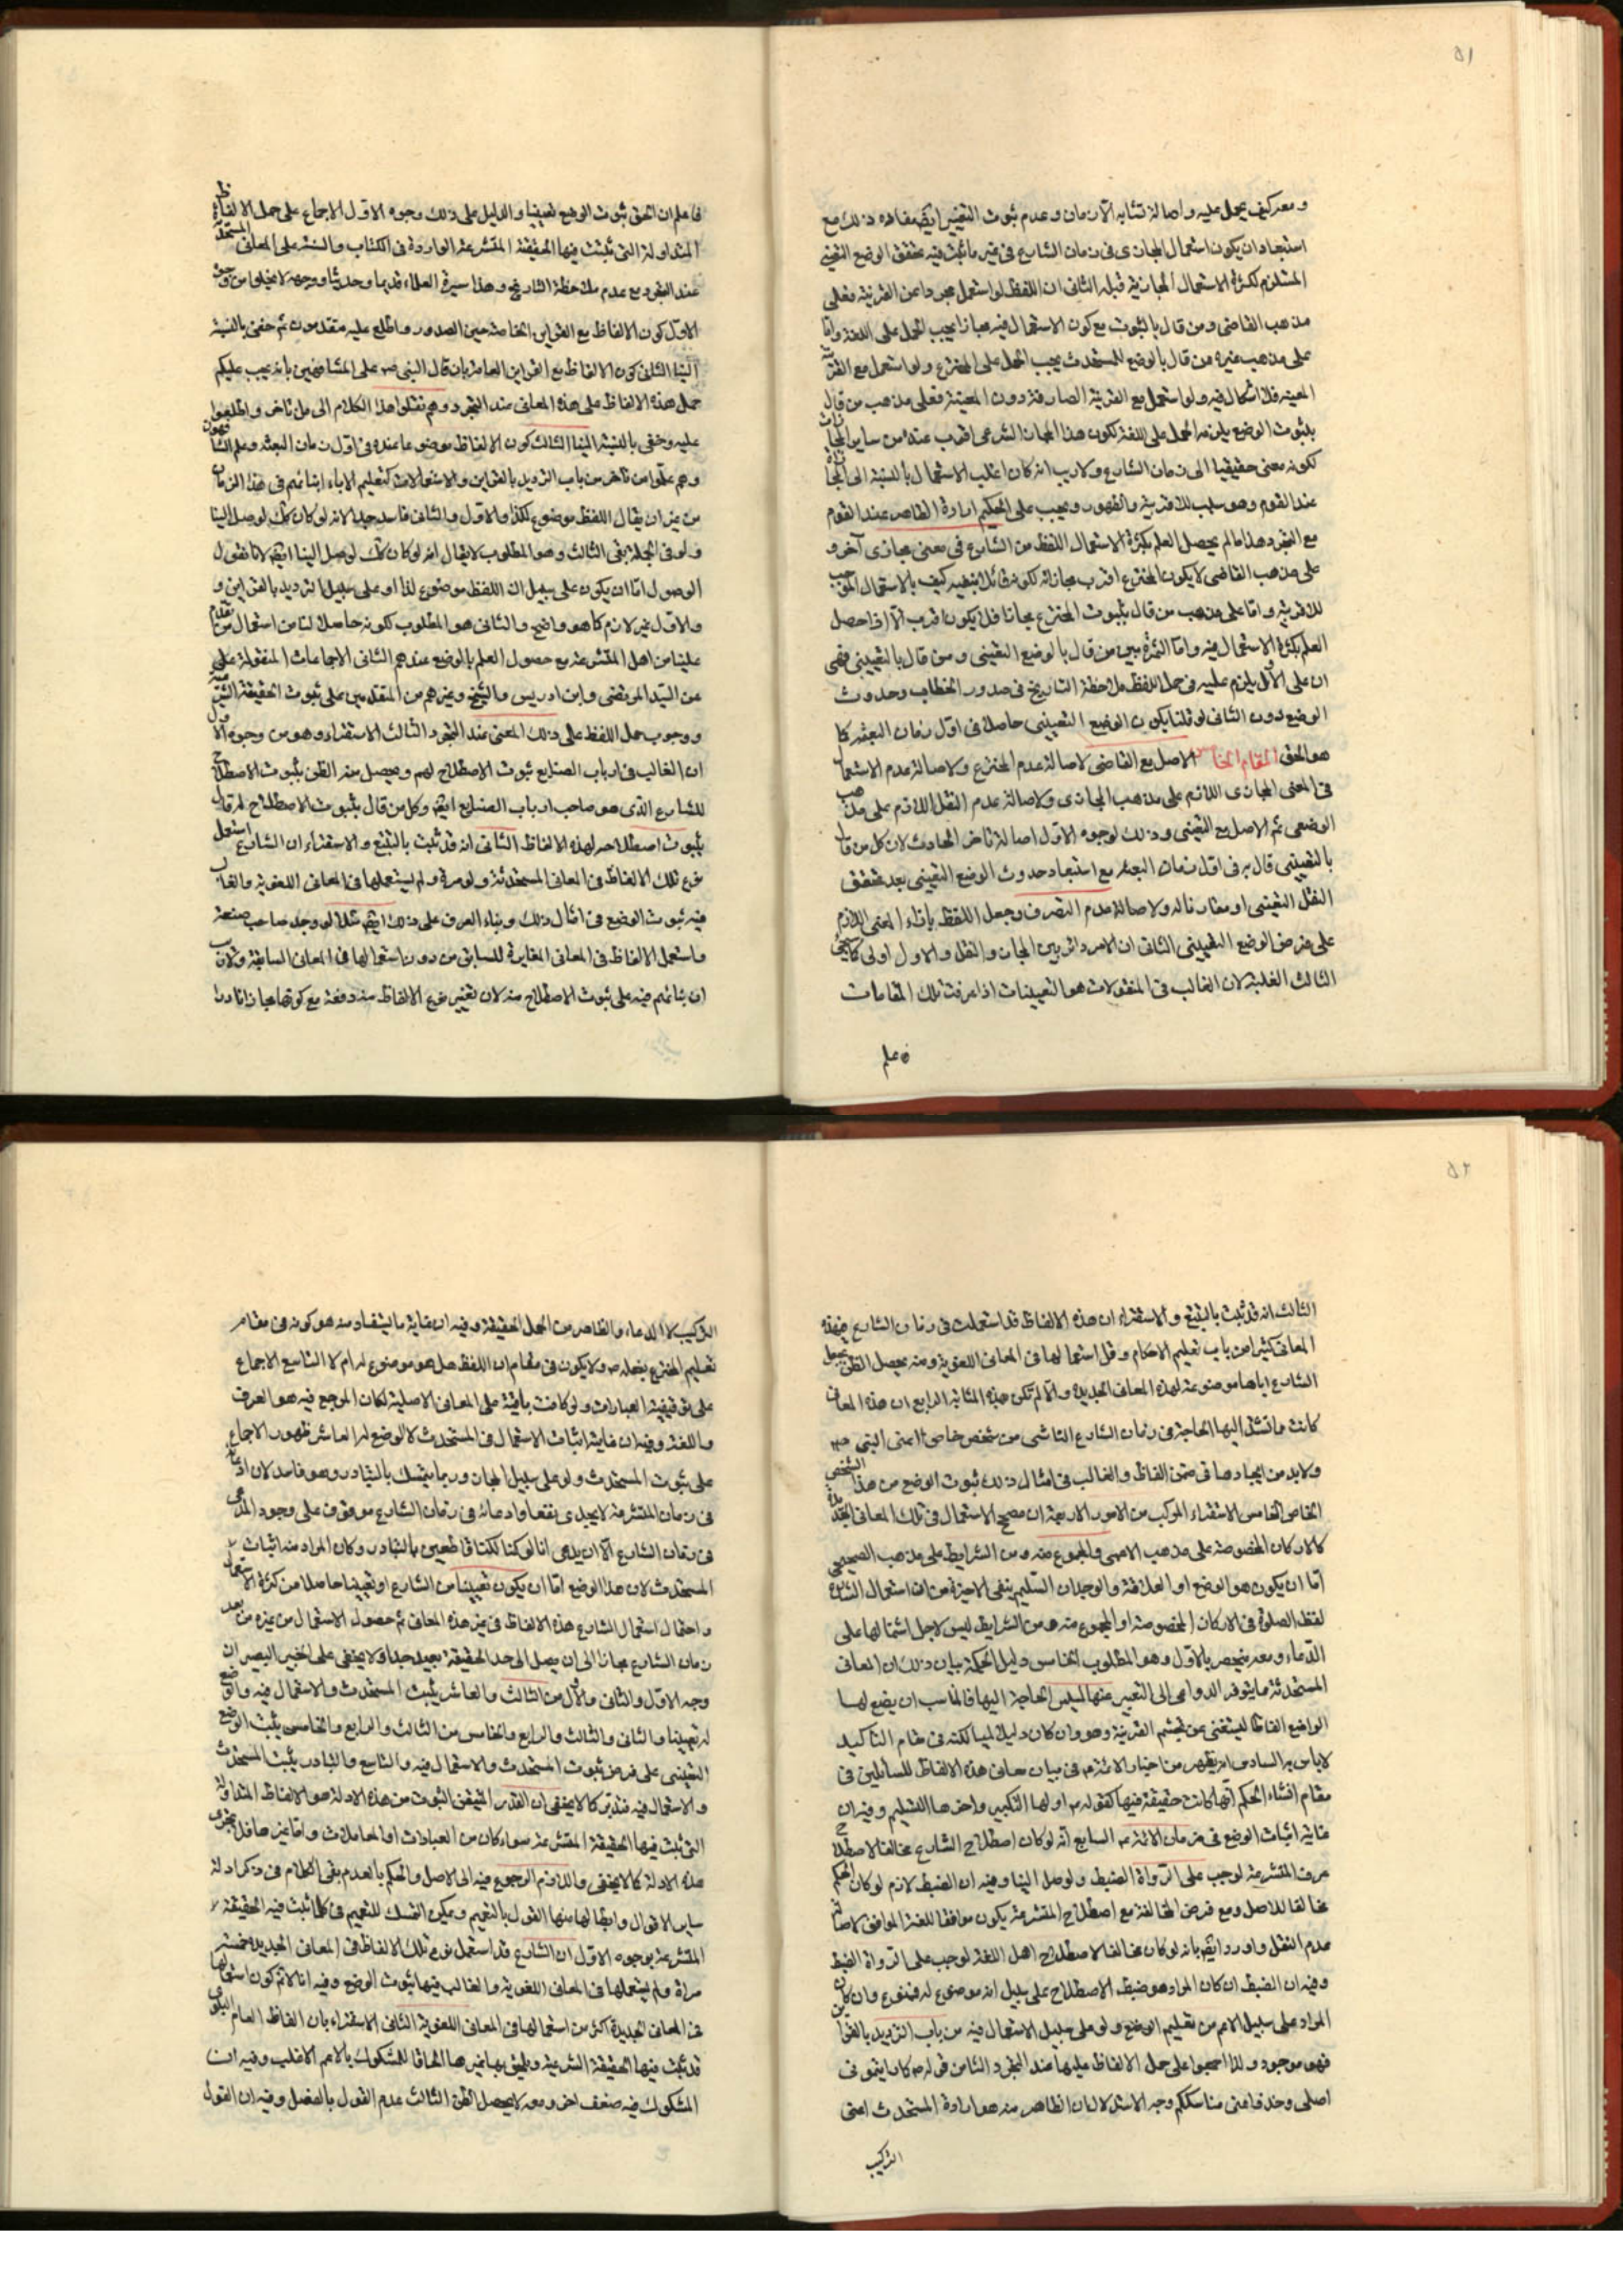 ٥١
ومعه كيف يحمل عليه واصالة تشابه الازمان وعدم ثبوت التغيير ايضا مفاده ذلك مع
استبعاد ان يكون استعمال المجازى فى زمان الشارع فى غير ما ثبت فيه تحقق الوضع التعينى
المستلزم لكثرة الاستعمال المجازية قبله الثانى ان اللفظ لو استعمل مجردا عن القرينة فعلى
مذهب القاضى ومن قال بالثبوت مع كون الاستعمال فيه مجازا يجب الحمل على اللغة واما
على مذهب غيره من قال بالوضع للمستحدث يجب الحمل على المخترع ولو استعمل مع القرينة
المعينة فلا اشكال فيه ولو استعمل مع القرينة الصارفة دون المعينة فعلى مذهب من قال
بثبوت الوضع يلزمه الحمل على اللغة لكون هذا المجاز الشرعى اقرب عنده من ساير المجازات
لكونه معنى حقيقيا الى زمان الشارع ولا ريب انه كان اغلب الاستعمال بالنسبة الى المجاز
عند القوم وهو سبب للاقربية والظهور ويجب على الحكيم ارادة الظاهر عند القوم
مع التجرد هذا ما لم يحصل العلم بكثرة الاستعمال اللفظ من الشارع فى معنى مجازى آخر و
على مذهب القاضى لا يكون المخترع اقرب مجازاته لكونه قائلا بنفيه كيف بالاستعمال الموجب
للاقربية واما على مذهب من قال بثبوت المخترع مجازا فلا يكون اقرب الا اذا حصل
العلم بكثرة الاستعمال فيه واما الثمرة بين من قال بالوضع التعينى ومن قال بالتعيينى فهى
ان على الاول يلزم عليه فى حمل اللفظ ملاحظة التاريخ فى صدور الخطاب وحدوث
الوضع دون الثانى لو قلنا بكون الوضع التعيينى حاصلا فى اول زمان البعثة كما
هو الحق المقام الخامس الاصل مع القاضى لاصالة عدم المخترع ولاصالة عدم الاستعمال
فى المعنى المجازى اللازم على مذهب المجازى ولاصالة عدم النقل اللازم على مذهب
الوضعى ثم الاصل مع التعينى وذلك لوجوه الاول اصالة تاخر الحادث لان كل من قال
بالتعيينى قال به فى اول زمان البعثة مع استبعاد حدوث الوضع التعيينى بعد تحقق
النقل التعينى او مقارنا له ولاصالة عدم التصرف وجعل اللفظ بازاء المعنى اللازم
على فرض الوضع التعيينى الثانى ان الامر دائر بين المجاز والنقل والاول اولى كما سيجئ
الثالث الغلبة لان الغالب فى المنقولات هو التعيينات اذا عرفت تلك المقامات
فاعلم
فاعلم ان الحق ثبوت الوضع تعيينيا والدليل على ذلك وجوه الاول الاجماع على حمل الالفاظ
المتداولة التى ثبتت فيها الحقيقة المتشرعة الواردة فى الكتاب والسنة على المعانى المستحدثة
عند التجرد مع عدم ملاحظة التاريخ وهذا سيرة العلماء قديما وحديثا ووجهه لا يخلو من وجوه
الاول كون الالفاظ مع القراين الخاصة حين الصدور واطلع عليه متقدمون ثم خفى بالنسبة
الينا الثانى كون الالفاظ مع القراين العامة بان قال النبى ص على المشافهين بانه يجب عليكم
حمل هذه الالفاظ على هذه المعانى عند التجرد وهم نقلوا هذا الكلام الى من تاخر واطلعوا
عليه وخفى بالنسبة الينا الثالث كون الالفاظ موضوعا عنده فى اول زمان البعثة وعلم المشافهون
وهم علّموا من تاخر من باب الترديد بالقراين والاستعمالات كتعليم الاباء ابنائهم فى هذا الزمان
من غير ان يقال اللفظ موضوع لكذا والاول والثانى فاسد جدا لانه لو كان كك لوصل الينا
ولو فى الجملة بقى الثالث وهو المطلوب لا يقال انه لو كان كك لوصل الينا ايضا لانا نقول
الوصول اما ان يكون على سبيل ان اللفظ موضوع لذا او على سبيل الترديد بالقراين و
والاول غير لازم كما هو واضح والثانى هو المطلوب لكونه حاصلا لنا من استعمال من تقدم
علينا من اهل المتشرعة مع حصول العلم بالوضع عندهم الثانى الاجماعات المنقولة على
عن السيد المرتضى وابن ادريس والشيخ وغيرهم من المتقدمين على ثبوت الحقيقة الشرعية
ووجوب حمل اللفظ على ذلك المعنى عند التجرد الثالث الاستقراء وهو من وجوه الاول
ان الغالب فى ارباب الصنايع ثبوت الاصطلاح لهم ويحصل منه الظن بثبوت الاصطلاح
للشارع الذى هو صاحب ارباب الصنايع ايضا وكل من قال بثبوت الاصطلاح له قال
بثبوت اصطلاحه لهذه الالفاظ الثانى انه قد ثبت بالتتبع والاستقراء ان الشارع استعمل
نوع تلك الالفاظ فى المعانى المستحدثة ولو مرة ولم يستعملها فى المعانى اللغوية والغالب
فيه ثبوت الوضع فى امثال ذلك وبناء العرف على ذلك ايضا مثلا لو وجد صاحب صنعة
واستعمل الالفاظ فى المعانى المغايرة للسابق من دون استعمالها فى المعانى السابقة فلا ريب
ان بنائهم فيه على ثبوت الاصطلاح منه لان تغيير نوع الالفاظ منه دفعة مع كونها مجازا نادرا
٥٢
الثالث انه قد ثبت بالتتبع والاستقراء ان هذه الالفاظ قد استعملت فى زمان الشارع فى هذه
المعانى كثيرا من باب تعليم الاحكام وقل استعمالها فى المعانى اللغوية ومنه يحصل الظن بجعل
الشارع اياها موضوعة لهذه المعانى الجديدة والا لم تكن بهذه المثابة الرابع ان هذه المعانى
كانت مما تشتد اليها الحاجة فى زمان الشارع الناشى من شخص خاص اعنى النبى ص
ولابد من ايجادها فى ضمن الفاظ والغالب فى امثال ذلك ثبوت الوضع من هذا الشخص
الخاص الخامس الاستقراء المركب من الامور الاربعة ان مصحح الاستعمال فى تلك المعانى الجديدة
كالاركان المخصوصة على مذهب الاعمى والمجموع منه ومن الشرايط على مذهب الصحيحى
اما ان يكون هو الوضع او العلاقة والوجدان السليم ينفى الاخيرة من ان استعمال الشارع
لفظ الصلوة فى الاركان المخصوصة او المجموع منه ومن الشرايط ليس لاجل اشتمالها على
الدعاء ومعه ينحصر بالاول وهو المطلوب الخامس دليل الحكمة بيان ذلك ان المعانى
المستحدثة مما يتوفر الدواعى الى التعبير عنها لمسيس الحاجة اليها فالمناسب ان يضع لها
الواضع الفاظا ليستغنى عن تجشم القرينة وهو وان كان دليلا لميا لكنه فى مقام التاكيد
لا باس به السادس انه يظهر من اخبار الائمة ع فى بيان معانى هذه الالفاظ للسائلين فى
مقام انشاء الحكم انها كانت حقيقة فيها كقوله ع اولها التكبير واخرها التسليم وفيه ان
غايته اثبات الوضع فى زمان الائمة ع السابع انه لو كان اصطلاح الشارع مخالفا لاصطلاح
عرف المتشرعة لوجب على الرواة الضبط ولوصل الينا وفيه ان الضبط لازم لو كان الحكم
مخالفا للاصل ومع فرض المخالفة مع اصطلاح المتشرعة يكون موافقا للغة الموافق لاصالة
عدم النقل واورد ايضا بانه لو كان مخالفا لاصطلاح اهل اللغة لوجب على الرواة الضبط
وفيه ان الضبط ان كان المراد هو ضبط الاصطلاح على سبيل انه موضوع له فممنوع وان كان
المراد على سبيل الاعم من تعليم الوضع ولو على سبيل الاستعمال فيه من باب الترديد بالقراين
فهو موجود ولذا اجمعوا على حمل الالفاظ عليها عند التجرد الثامن قوله ص كما رايتمونى
اصلى وخذوا عنى مناسككم وجه الاستدلال ان الظاهر منه هو ارادة المستحدث اعنى
التركيب
التركيب لا الدعاء والظاهر من الحمل الحقيقة وفيه ان غاية ما يستفاد منه هو كونه فى مقام
تعليم المخترع بفعله ص ولا يكون فى مقام ان اللفظ هل هو موضوع له ام لا التاسع الاجماع
على توقيفية العبادات ولو كانت باقية على المعانى الاصلية لكان المرجع فيه هو العرف
واللغة وفيه ان غايته اثبات الاستعمال فى المستحدث لا الوضع له العاشر ظهور الاجماع
على ثبوت المستحدث ولو على سبيل المجاز وربما يتمسك بالتبادر وهو فاسد لان ادعائه
فى زمان المتشرعة لا يجدى نفعا وادعائه فى زمان الشارع موقوف على وجود المدعى
فى زمان الشارع الا ان يدعى انا لو كنا لكنا قاطعين بالتبادر وكان المراد منه اثبات
المستحدث لان هذا الوضع اما ان يكون تعيينا من الشارع او تعينا حاصلا من كثرة الاستعمال
واحتمال استعمال الشارع هذه الالفاظ فى غير هذه المعانى ثم حصول الاستعمال من غيره من بعد
زمان الشارع مجازا الى ان يصل الى حد الحقيقة بعيد جدا ولا يخفى على الخبير البصير ان
وجه الاول والثانى والاول من الثالث والعاشر يثبت المستحدث والاستعمال فيه والوضع
له تعيينا والثانى والثالث والرابع والخامس من الثالث والرابع والخامس يثبت الوضع
التعيينى على فرض ثبوت المستحدث والاستعمال فيه والتاسع والتبادر يثبت المستحدث
والاستعمال فيه فتدبر كما لا يخفى ان القدر المتيقن الثبوت من هذه الادلة هو الالفاظ المتداولة
التى ثبت فيها الحقيقة المتشرعة سواء كان من العبادات او المعاملات واما غيرها فلا يجرى
هذه الادلة كما لا يخفى واللازم الرجوع فيه الى الاصل والحكم بالعدم بقى الكلام فى ذكر ادلة
ساير الاقوال وابطالها منها القول بالتعميم ويمكن التمسك للتعميم فى كلما ثبت فيه الحقيقة
المتشرعة بوجوه الاول ان الشارع قد استعمل نوع تلك الالفاظ فى المعانى الجديدة خمسين
مرة ولم يستعملها فى المعانى اللغوية والغالب فيها ثبوت الوضع وفيه انا لا نم كون استعمالها
فى المعانى الجديدة اكثر من استعمالها فى المعانى اللغوية الثانى الاستقراء بان الفاظ العام البلوى
قد ثبت فيها الحقيقة الشرعية ونلحق بها غيرها الحاقا للمشكوك بالاعم الاغلب وفيه ان
المشكوك فيه صنف اخر ومعه لا يحصل الظن الثالث عدم القول بالفصل وفيه ان القول